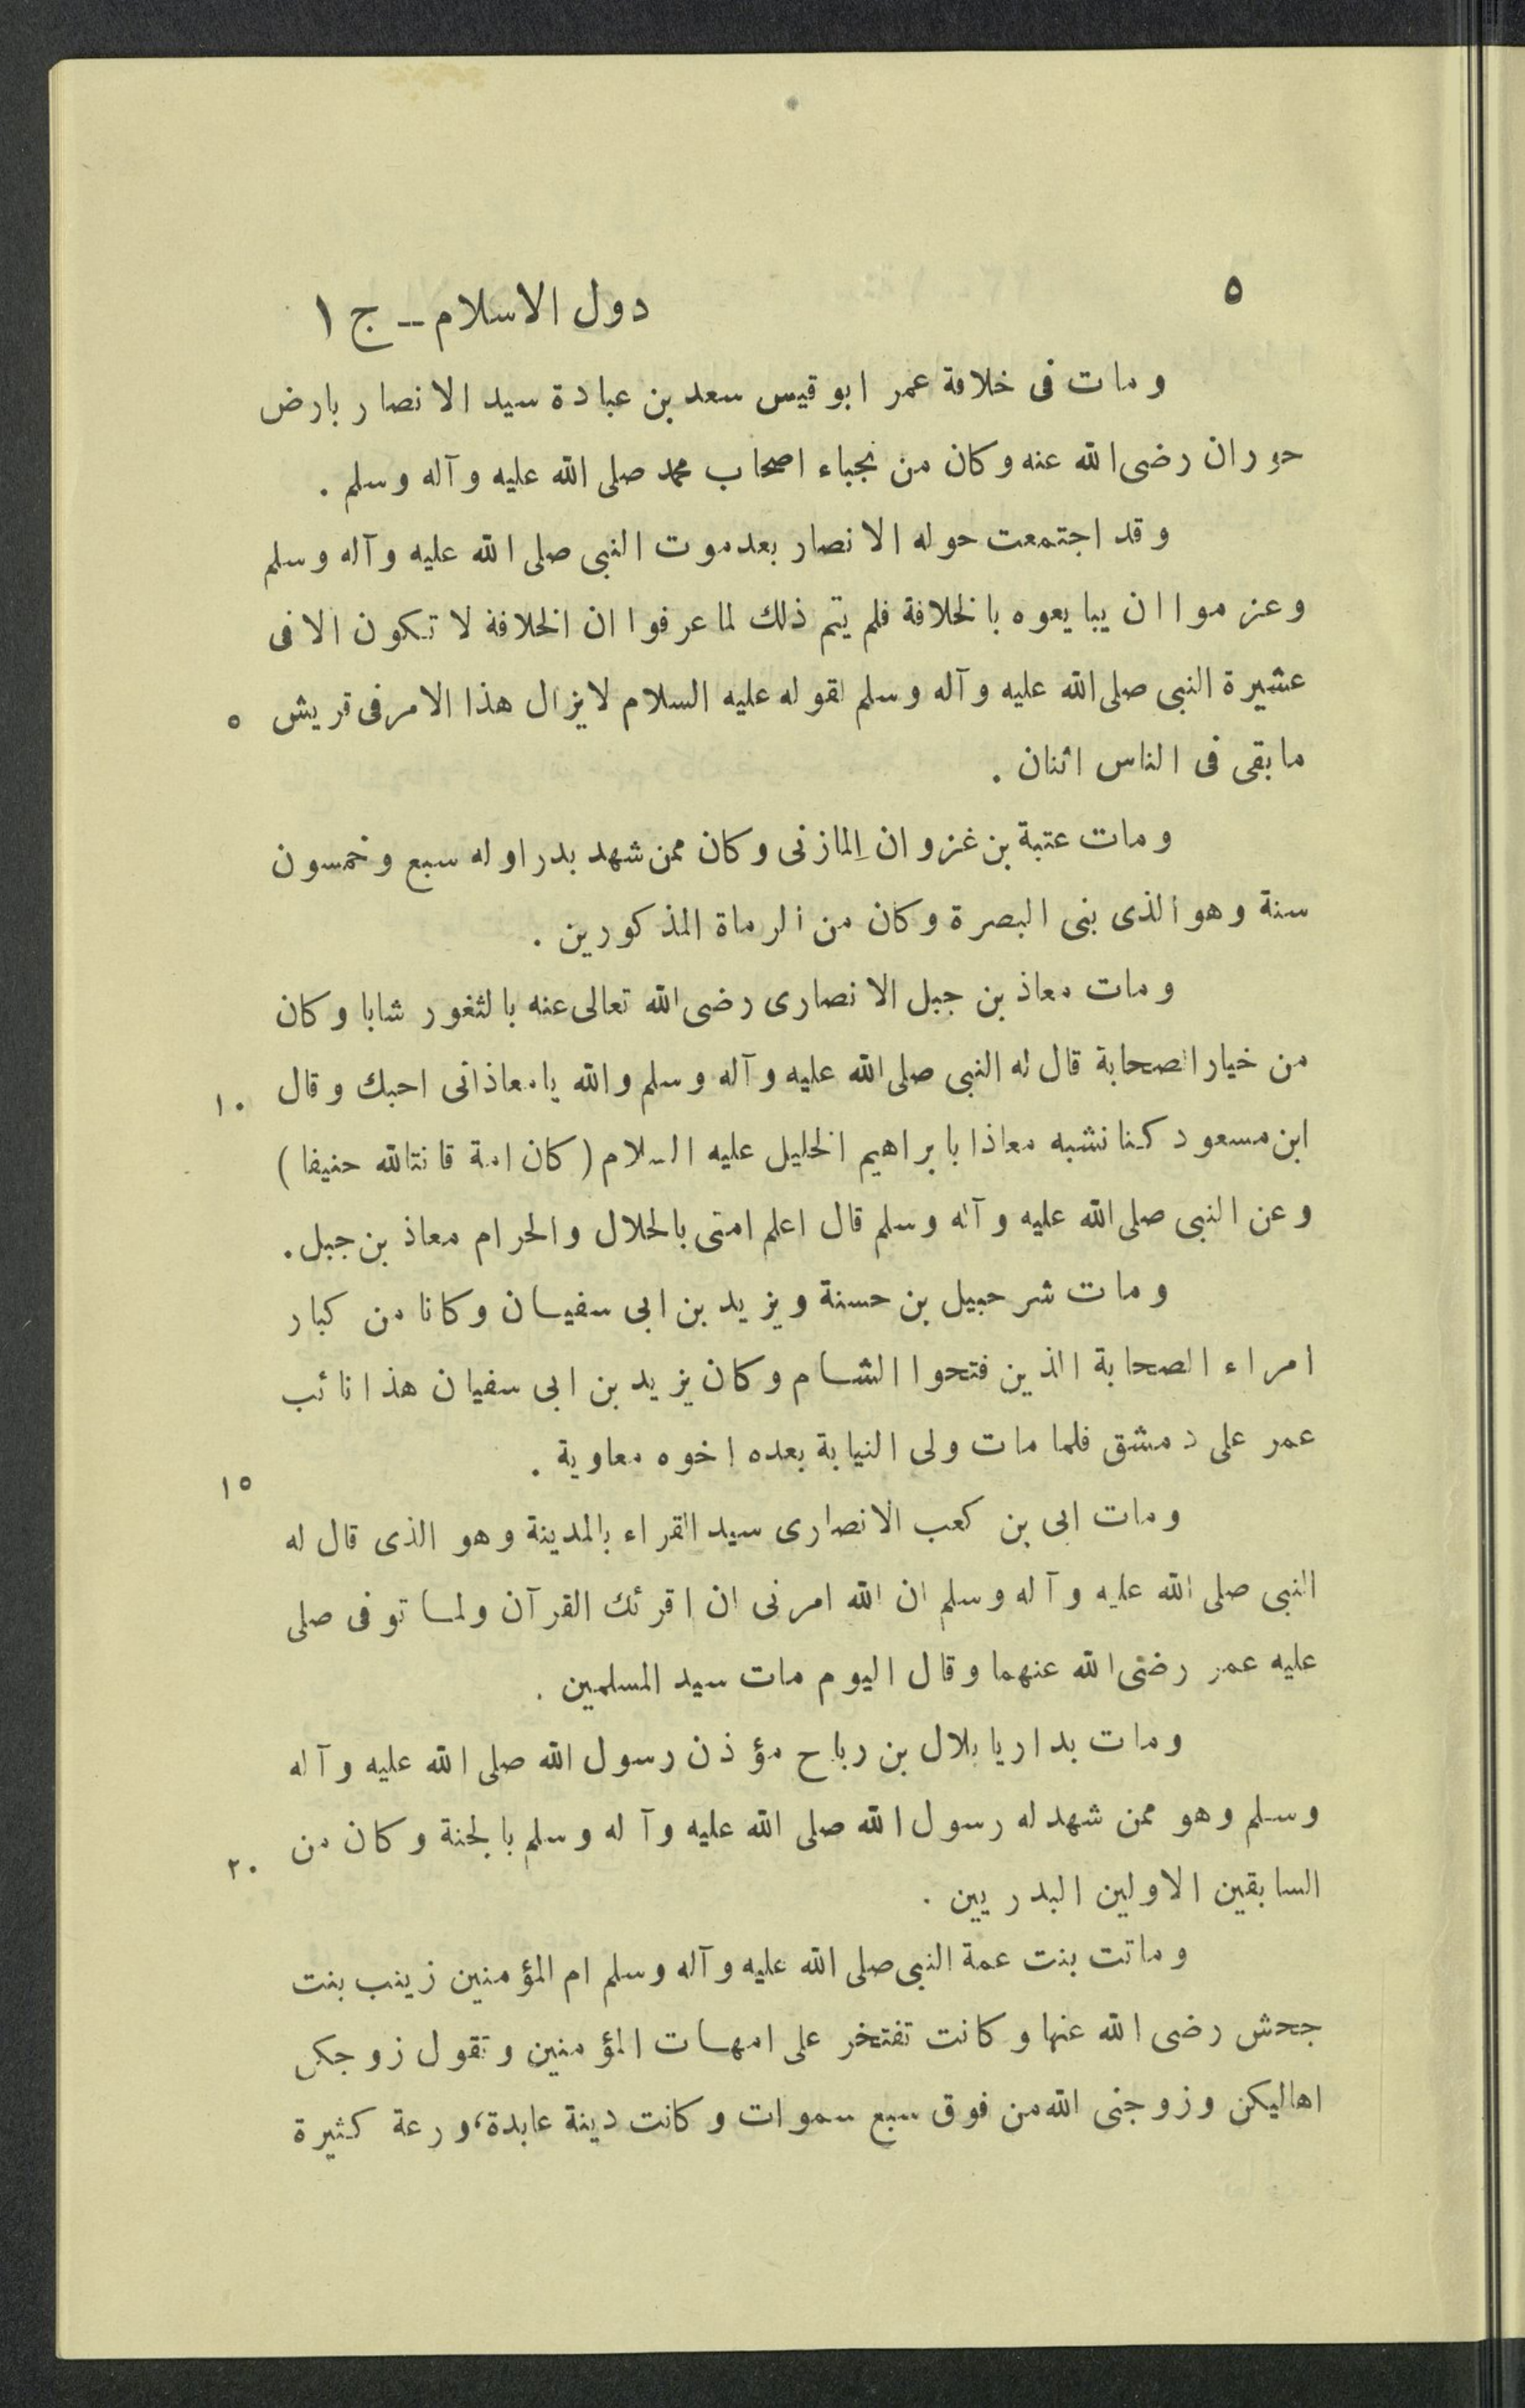 ٥
دول الاسلام ــ ج ١
ومات فى خلافة عمر ابو قيس سعد بن عبادة سيد الانصار بارض
حوران رضى الله عنه وكان من نجباء اصحاب محمد صلى الله عليه وآله وسلم .
وقد اجتمعت حوله الانصار بعد موت النبى صلى الله عليه وآله وسلم
وعزموا ان يبايعوه بالخلافة فلم يتم ذلك لما عرفوا ان الخلافة لا تكون الا فى
عشيرة النبى صلى الله عليه وآله وسلم لقوله عليه السلام لا يزال هذا الامر فى قريش ٥
ما بقى فى الناس اثنان .
ومات عتبة بن غزوان المازنى وكان ممن شهد بدرا وله سبع وخمسون
سنة وهو الذى بنى البصرة وكان من الرماة المذكورين .
ومات معاذ بن جبل الانصارى رضى الله تعالى عنه بالثغور شابا وكان
من خيار الصحابة قال له النبى صلى الله عليه وآله وسلم والله يا معاذ انى احبك وقال ١٠
ابن مسعود كنا نشبه معاذا بابراهيم الخليل عليه السلام (كان امة قانتا لله حنيفا)
وعن النبى صلى الله عليه وآله وسلم قال اعلم امتى بالحلال والحرام معاذ بن جبل .
ومات شرحبيل بن حسنة ويزيد بن ابى سفيان وكانا من كبار
امراء الصحابة الذين فتحوا الشام وكان يزيد بن ابى سفيان هذا نائب
عمر على دمشق فلما مات ولى النيابة بعده اخوه معاوية . ١٥
ومات ابى بن كعب الانصارى سيد القراء بالمدينة وهو الذى قال له
النبى صلى الله عليه وآله وسلم ان الله امرنى ان اقرئك القرآن ولما توفى صلى
عليه عمر رضى الله عنهما وقال اليوم مات سيد المسلمين .
ومات بداريا بلال بن رباح مؤذن رسول الله صلى الله عليه وآله
وسلم وهو ممن شهد له رسول الله صلى الله عليه وآله وسلم بالجنة وكان من ٢٠
السابقين الاولين البدريين .
وماتت بنت عمة النبى صلى الله عليه وآله وسلم ام المؤمنين زينب بنت
جحش رضى الله عنها وكانت تفتخر على امهات المؤمنين وتقول زوجكن
اهاليكن وزوجنى الله من فوق سبع سموات وكانت دينة عابدة، ورعة كثيرة